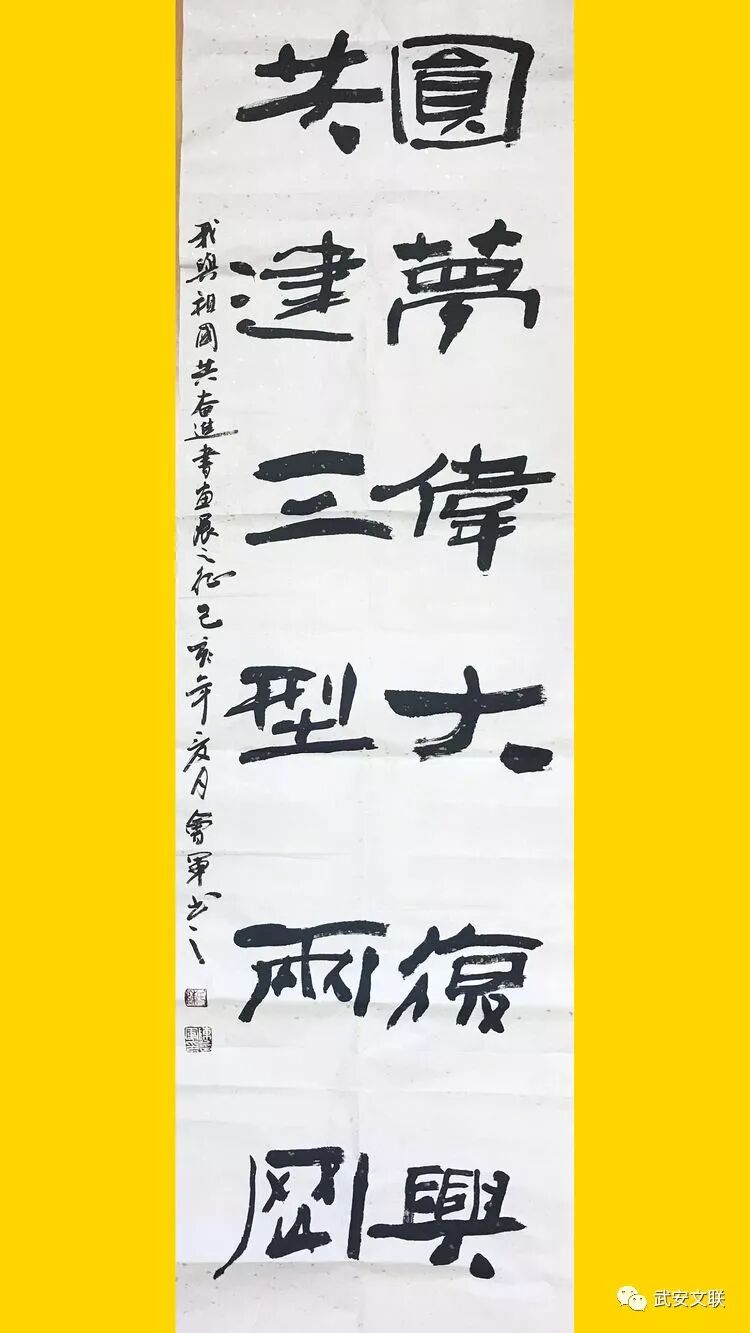 圓夢偉大復興
共建三型兩罔
我與祖國共奋進書画展之征己亥年夏月會軍书之
武安文联